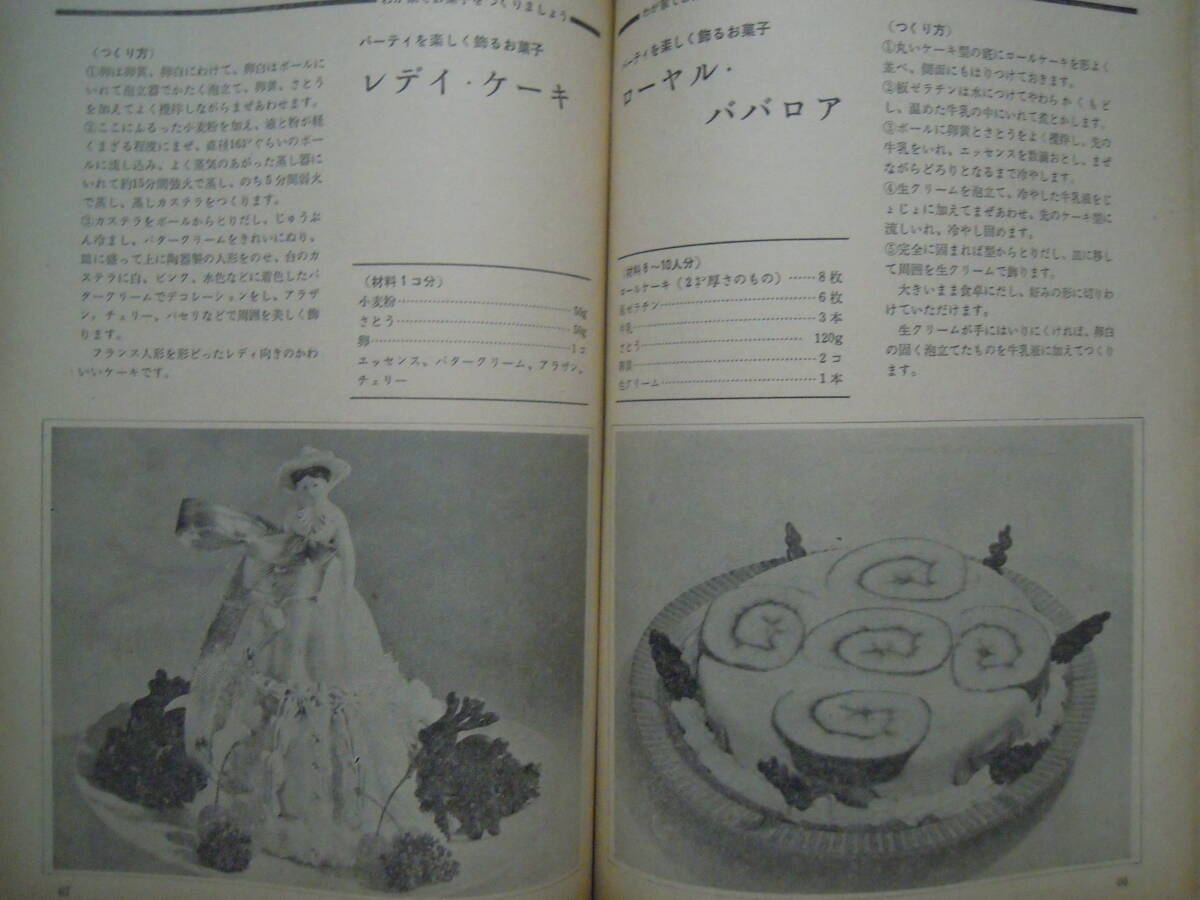 わが家でお菓子をつくりましょう
パーティを楽しく飾るお菓子
レデイ・ケーキ
(つくり方)
①卵は卵黄、卵白にわけて、卵白はボールに
いれて泡立器でかたく泡立て、卵黄、さとう
を加えてよく攪拌しながらまぜあわせます。
②ここにふるった小麦粉を加え、液と粉が軽
くまざる程度にまぜ、直径16㌢ぐらいのボー
ルに流し込み、よく蒸気のあがった蒸し器に
いれて約15分間強火で蒸し、のち5分間弱火
で蒸し、蒸しカステラをつくります。
③カステラをボールからとりだし、じゅうぶ
ん冷まし、バタークリームをきれいにぬり、
皿に盛って上に陶器製の人形をのせ、台のカ
ステラに白、ピンク、水色などに着色したバ
タークリームでデコレーションをし、アラザ
ン、チェリー、パセリなどで周囲を美しく飾
ります。
フランス人形を形どったレディ向きのかわ
いいケーキです。
(材料1コ分)
小麦粉……50g
さとう……50g
卵……1コ
エッセンス、バタークリーム、アラザン、
チェリー
わが家で
パーティを楽しく飾るお菓子
ローヤル・
ババロア
(材料8〜10人分)
ロールケーキ(2㌢厚さのもの)……8枚
板ゼラチン……6枚
牛乳……3本
さとう……120g
卵黄……2コ
生クリーム……1本
(つくり方)
①丸いケーキ型の底にロールケーキを形よく
並べ、側面にもはりつけておきます。
②板ゼラチンは水につけてやわらかくもど
し、温めた牛乳の中にいれて煮とかします。
③ボールに卵黄とさとうをよく攪拌し、先の
牛乳をいれ、エッセンスを数滴おとし、まぜ
ながらどろりとなるまで冷やします。
④生クリームを泡立て、冷やした牛乳液をじ
ょじょに加えてまぜあわせ、先のケーキ型に
流しいれ、冷やし固めます。
⑤完全に固まれば型からとりだし、皿に移し
て周囲を生クリームで飾ります。
大きいまま食卓にだし、好みの形に切りわ
けていただけます。
生クリームが手にはいりにくければ、卵白
の固く泡立てたものを牛乳液に加えてつくり
ます。